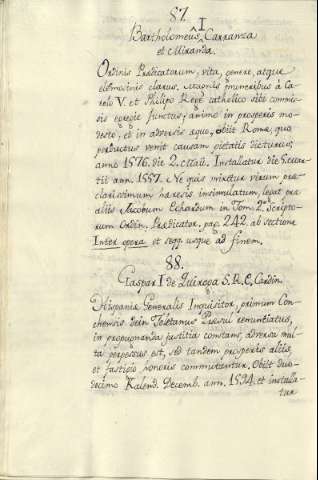 87.
Bartholomeus I Carranza
et Miranda.
Ordinis Prædicatorum, vita, genere, atque
elemosinis clarus. muneribus à Ca-
rolo V. et Philipo Rege catholico sibi commis-
sis egregie functus; animo in prosperis mo-
desto, et in adversis æquo, obiit Romæ, quo
perductus venit causam pietatis dicturus,
anno 1576. die 2. Maii. Installatur die
anno 1557. Ne quis miretur virum præ-
clarissimum hæresis insimulatum, legat præ
aliis Jacobum Echardum in Tom. 2º Scripto-
rum Ordin. Prædicator. pag. 242. ab sectione
Inter opera et seqq. usque ad finem.
88.
Gaspar I de Quiroga S. R. E. Cardin.
Hispaniæ Generalis Inquisitor, primum Con-
chensis dein Toletanus Præsul renuntiatus,
in propugnanda justitia constans, adversa mul-
ta perpessus est, sed tandem prosperis aliis,
et fastigio honoris commutantur. Obiit duo-
decimo Kalend. Decemb. ann. 1594. et installa-
tur